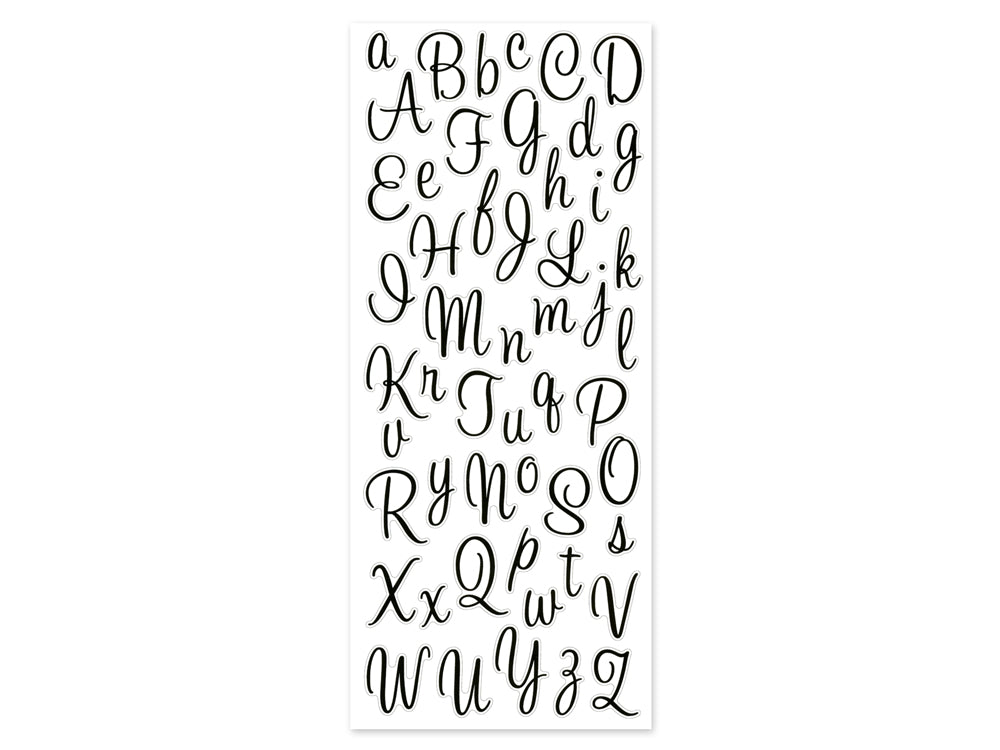 a B b c C D
A F G d g
E e f J h i
H L k
I M n m j l
K r T u q P
v
R y N o S O
s
X x Q p w t V
W U Y z Z